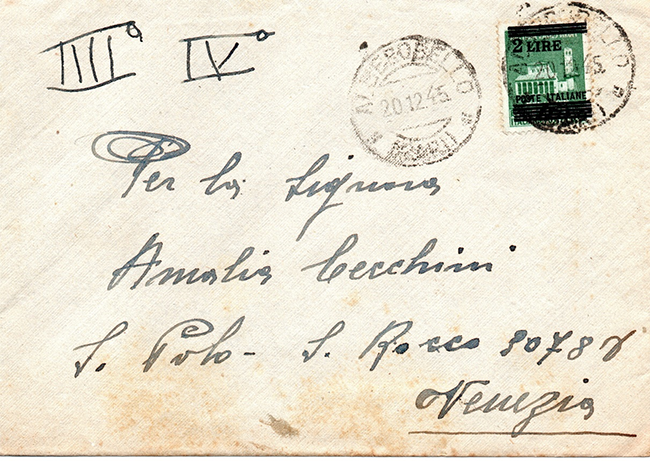 IIII° IV°
ALBEROBELLO
20.12.45
(BARI)
2 LIRE
POSTE ITALIANE
Per la Signora
Amalia Cecchini
S. Polo - S. Rocco
Venezia